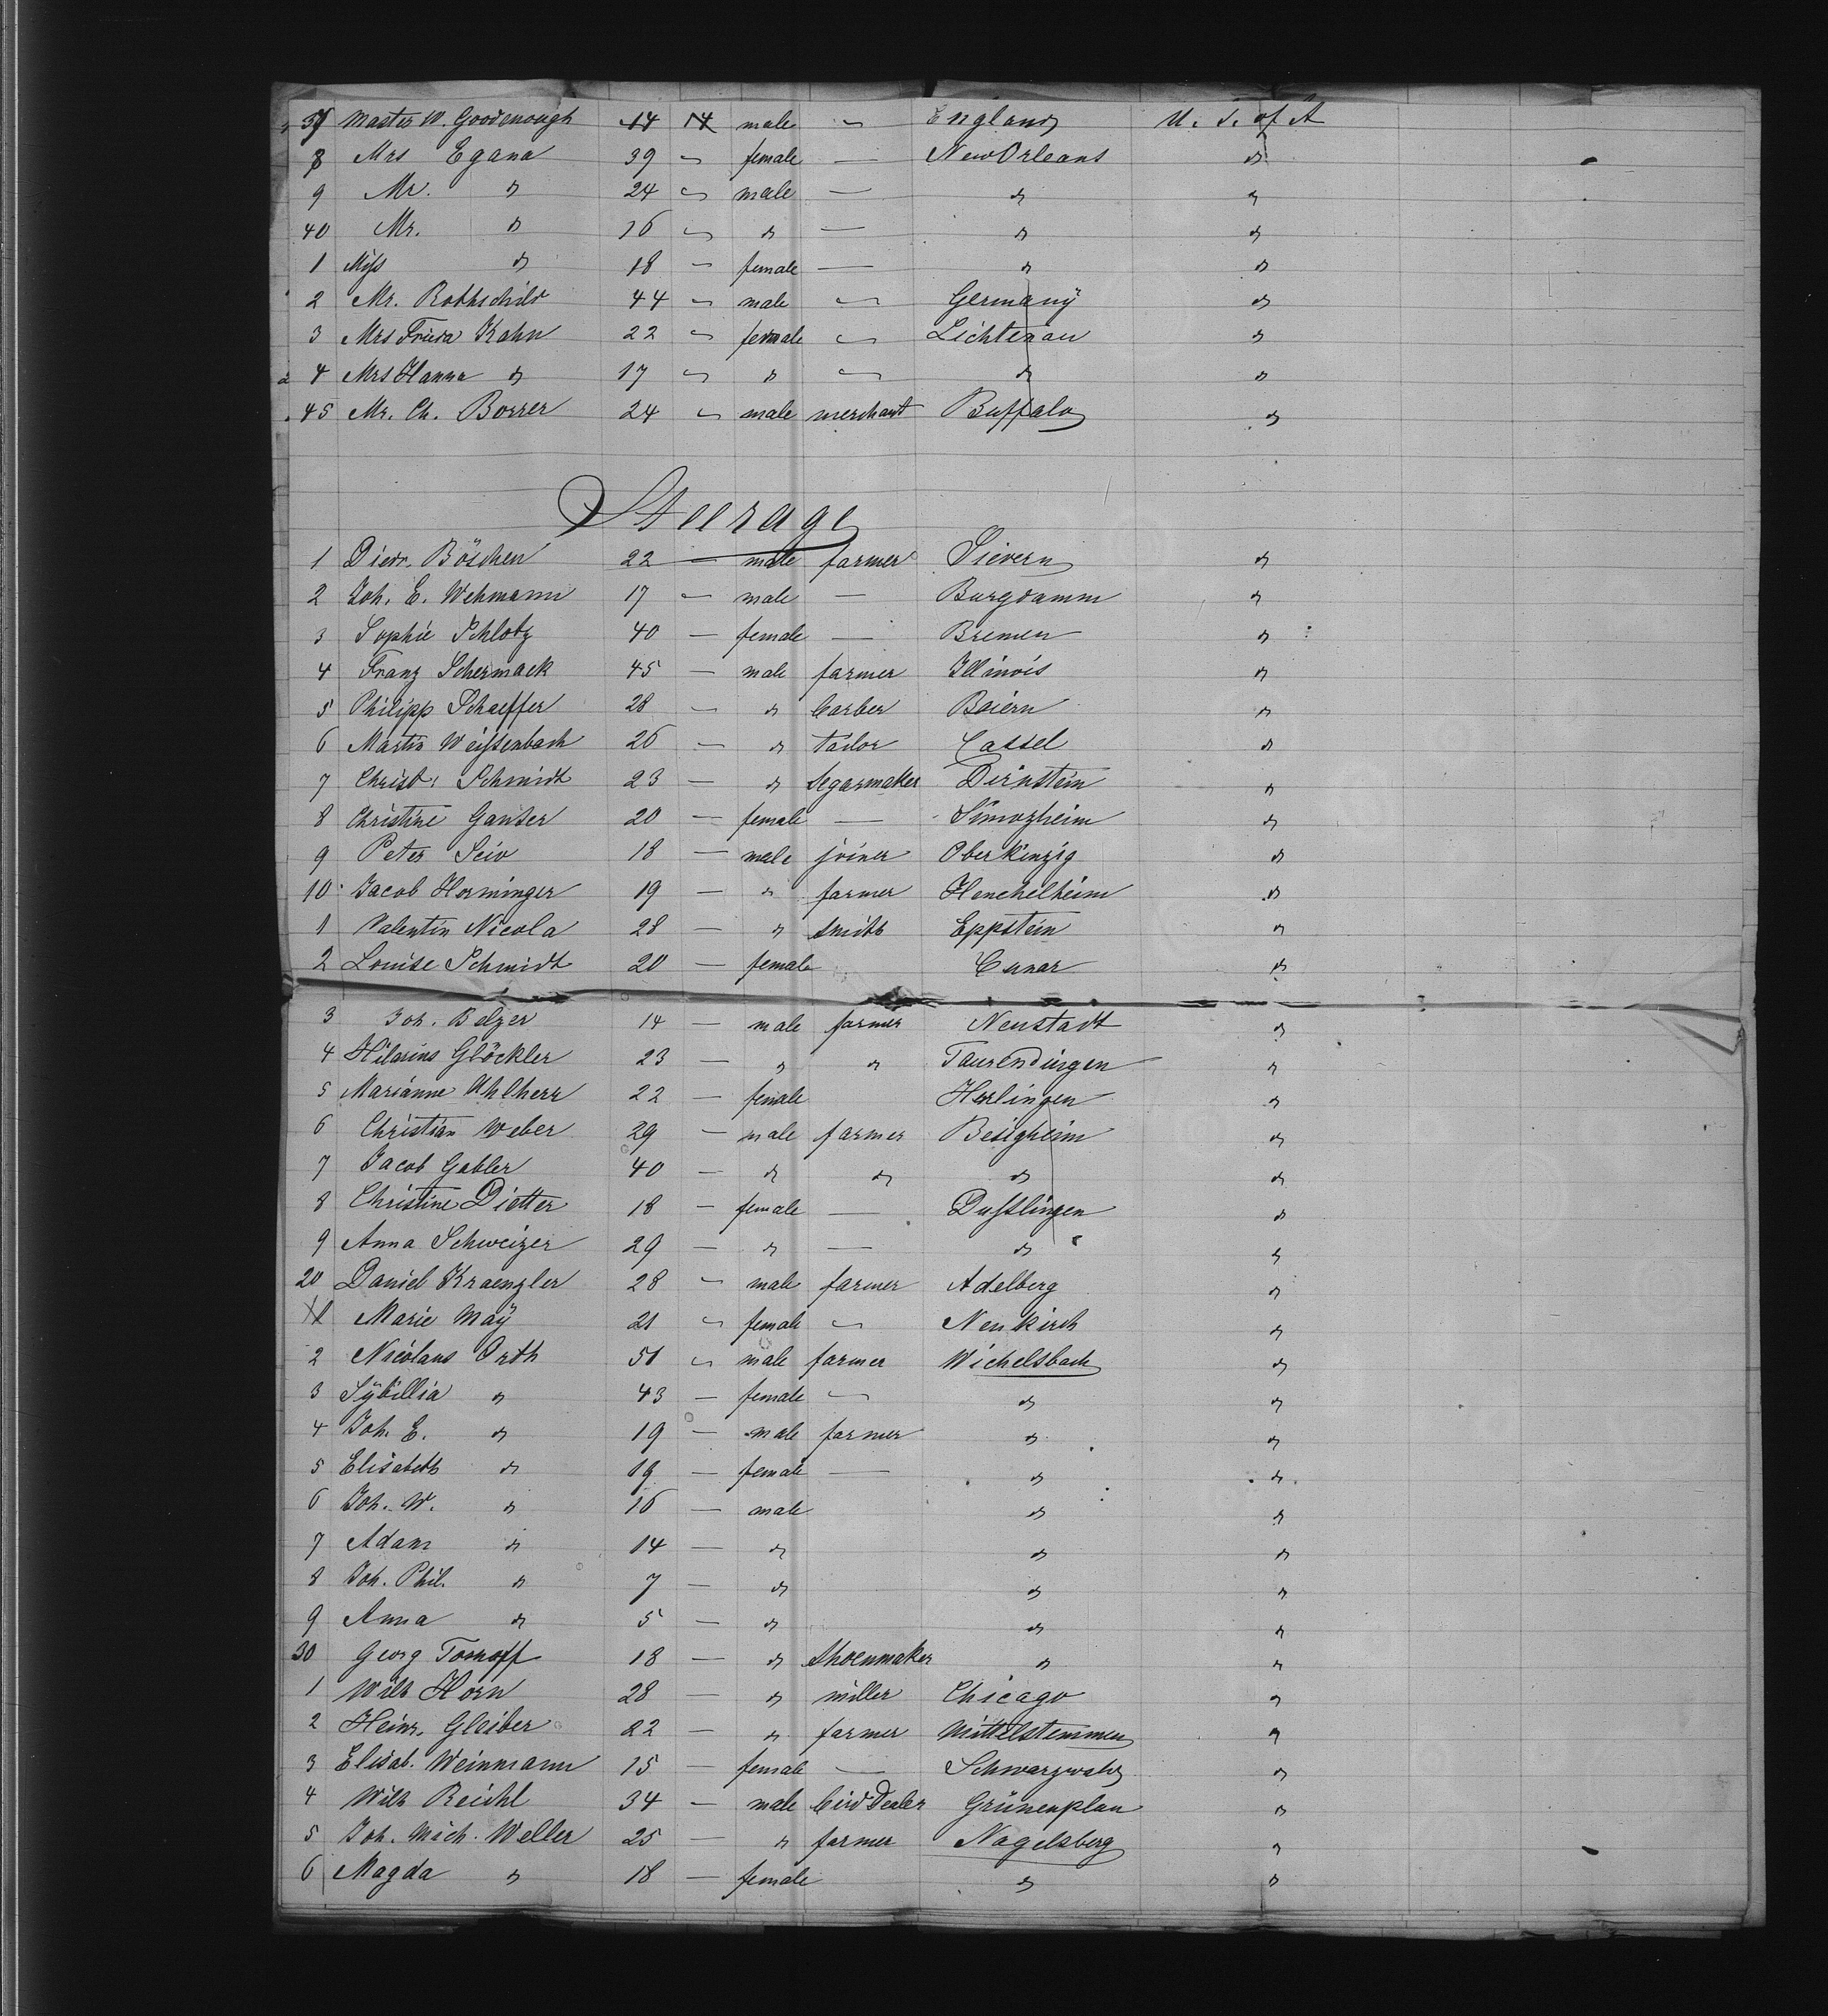 37 Master W. Goodenough 14 14 male — England U. S. of A
8 Mrs Egana 39 — female — New Orleans "
9 Mr. " 24 — male — " "
40 Mr. " 16 — " — " "
1 Miss " 18 — female — " "
2 Mr. Rothschild 44 — male — Germany "
3 Mrs Frieda Kahn 22 — female — Lichtenau "
4 Mrs Hanna " 17 — " — " "
45 Mr. Ch. Borrer 24 — male merchant Buffalo "
Steerage
1 Diedr. Böschen 22 — male farmer Sievern "
2 Joh. E. Wehmann 17 — male — Burgdamm "
3 Sophie Schlotz 40 — female — Bremen "
4 Franz Schermack 45 — male farmer Illinois "
5 Philipp Schaeffer 28 — " barber Baiern "
6 Martin Weissenbach 26 — " tailor Cassel "
7 Christ. Schmidt 23 — " segarmaker Dirnstein "
8 Christine Ganser 20 — female — Simozheim "
9 Peter Seip 18 — male joiner Oberkinzig "
10 Jacob Horminger 19 — " farmer Henchelheim "
1 Valentin Nicola 28 — " smith Eppstein "
2 Louise Schmidt 20 — female Cunar "
3 Joh. Belzer 14 — male farmer Neustadt "
4 Hilarius Glöckler 23 — " " Taurendingen "
5 Marianne Uhlherr 22 — female Herlingen "
6 Christian Weber 29 — male farmer Besigheim "
7 Jacob Gabler 40 — " " " "
8 Christine Dietter 18 — female — Dusslingen "
9 Anna Schweizer 29 — " — " "
20 Daniel Kraenzler 28 — male farmer Adelberg "
1 Marie Maÿ 21 — female — Neukirch "
2 Nicolaus Orth 51 — male farmer Wichelsbach "
3 Sÿbillia " 43 — female — " "
4 Joh. E. " 19 — male farmer " "
5 Elisabeth " 19 — female — " "
6 Joh. W. " 16 — male " "
7 Adam " 14 — " " "
8 Joh. Phil. " 7 — " " "
9 Anna " 5 — " " "
30 Georg Tornoff 18 — " Shoenmaker " "
1 Wilh Horn 28 — " miller Chicago "
2 Heinr. Gleiber 22 — " farmer Mittelstemmen "
3 Elisab. Weinmann 15 — female — Schwarzwald "
4 Wilh Reichl 34 — male bird Dealer Grünenplan "
5 Joh. Mich. Weller 25 — " farmer Nagelsberg "
6 Magda " 18 — female " "